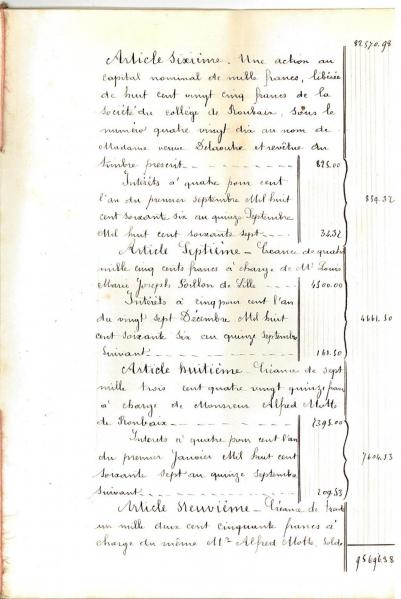 82570.98
Article Sixième. Une action au
capital nominal de mille francs, libérée
de huit cent vingt cinq francs de la
Société du collège de Roubaix, sous le
numéro quatre vingt dix au nom de
Madame veuve et revêtue du
timbre prescrit 825.00
Intérêts à quatre pour cent
l'an du premier septembre Mil huit 859.32
cent soixante six au quinze Septembre
Mil huit cent soixante sept 34.32
Article Septième _ Créance de quatre
mille cinq cents francs à charge de Mr Louis
Marie Joseph de Lille 4500.00
Intérêts à cinq pour cent l'an
du vingt sept Décembre Mil huit 4661.50
cent soixante six au quinze septembre
suivant 161.50
Article huitième Créance de sept
mille trois cent quatre vingt quinze francs
à charge de Monsieur Alfred Motte
de Roubaix 7395.00
Intérêts à quatre pour cent l'an
du premier Janvier Mil huit cent 7604.53
soixante sept au quinze septembre
suivant 209.53
Article Neuvième _ Créance de trente
un mille deux cent cinquante francs à
charge du même Mr Alfred Motte, Solde